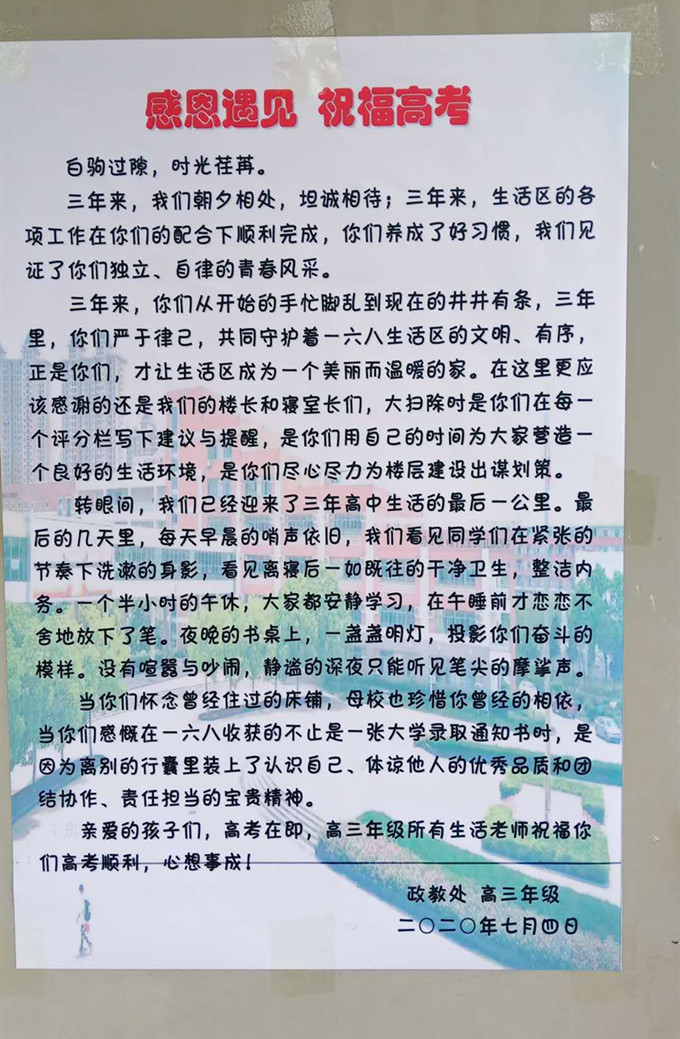 感恩遇见 祝福高考
白驹过隙，时光荏苒。
三年来，我们朝夕相处，坦诚相待；三年来，生活区的各
项工作在你们的配合下顺利完成，你们养成了好习惯，我们见
证了你们独立、自律的青春风采。
三年来，你们从开始的手忙脚乱到现在的井井有条，三年
里，你们严于律己，共同守护着一六八生活区的文明、有序，
正是你们，才让生活区成为一个美丽而温暖的家。在这里更应
该感谢的还是我们的楼长和寝室长们，大扫除时是你们在每一
个评分栏写下建议与提醒，是你们用自己的时间为大家营造一
个良好的生活环境，是你们尽心尽力为楼层建设出谋划策。
转眼间，我们已经迎来了三年高中生活的最后一公里。最
后的几天里，每天早晨的哨声依旧，我们看见同学们在紧张的
节奏下洗漱的身影，看见离寝后一如既往的干净卫生，整洁内
务。一个半小时的午休，大家都安静学习，在午睡前才恋恋不
舍地放下了笔。夜晚的书桌上，一盏盏明灯，投影你们奋斗的
模样。没有喧嚣与吵闹，静谧的深夜只能听见笔尖的摩挲声。
当你们怀念曾经住过的床铺，母校也珍惜你曾经的相依，
当你们感慨在一六八收获的不止是一张大学录取通知书时，是
因为离别的行囊里装上了认识自己、体谅他人的优秀品质和团
结协作、责任担当的宝贵精神。
亲爱的孩子们，高考在即，高三年级所有生活老师祝福你
们高考顺利，心想事成！
政教处 高三年级
二〇二〇年七月四日